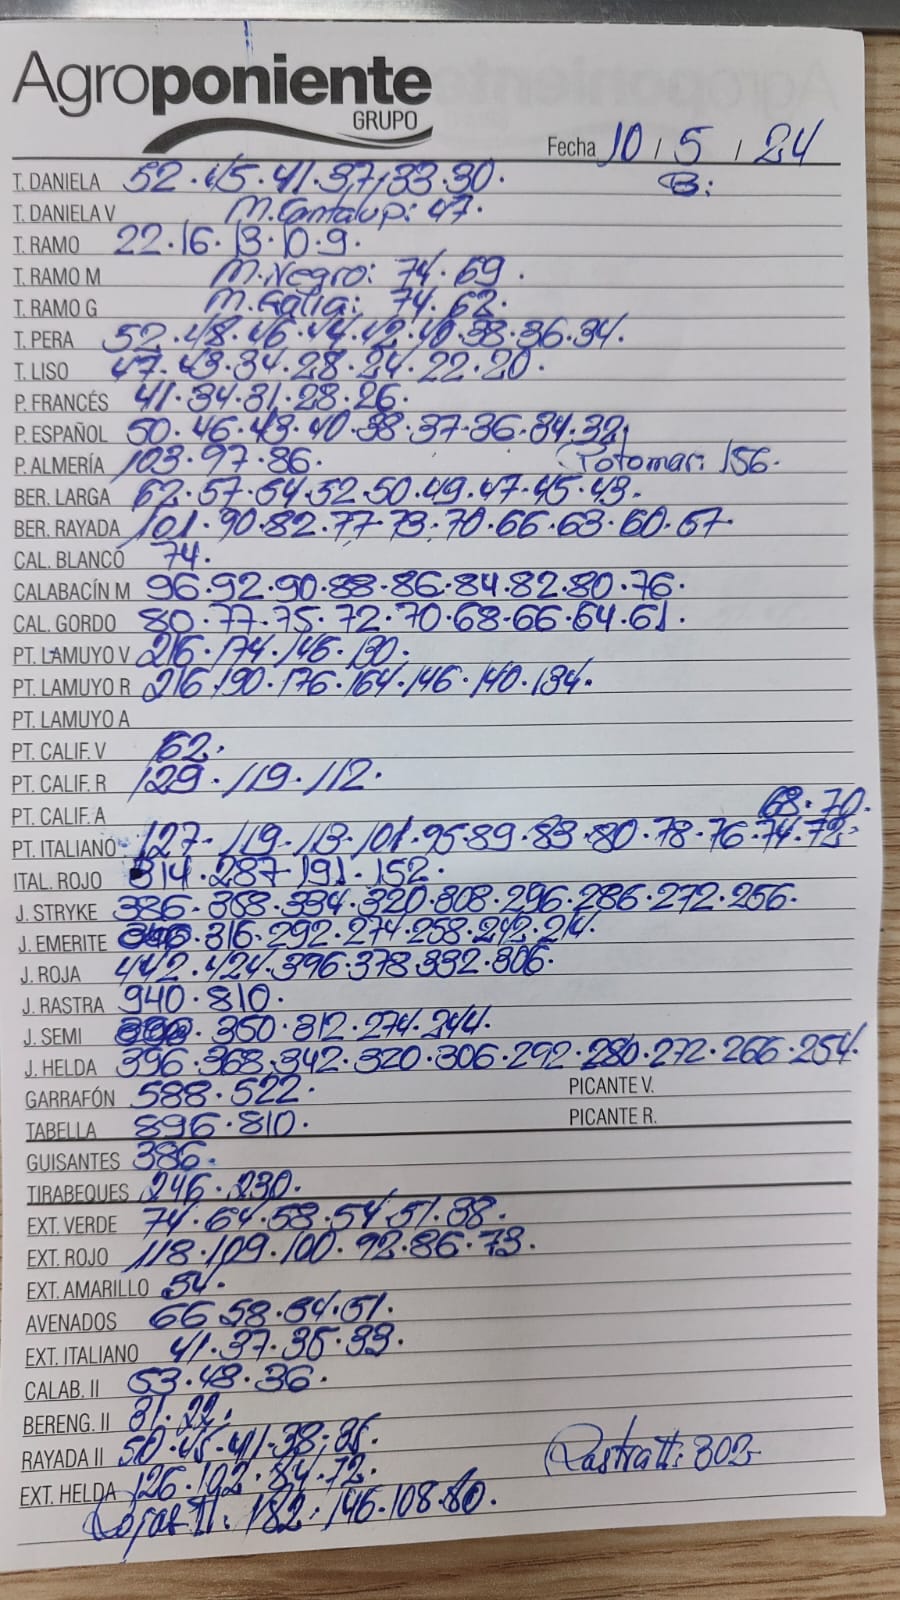 Agroponiente
GRUPO
Fecha 10 / 5 / 24
T. DANIELA 52·45·41·37·33·30· B:
T. DANIELA V M.Cantalup: 47·
T. RAMO 22·16·13·10·9·
T. RAMO M M.Negro: 74·69·
T. RAMO G M.Galia: 74·62·
T. PERA 52·48·46·44·42·40·38·36·34·
T. LISO 47·43·34·28·24·22·20·
P. FRANCÉS 41·34·31·28·26·
P. ESPAÑOL 50·46·43·40·38·37·36·34·32·
P. ALMERÍA 103·97·86· Potomar: 156·
BER. LARGA 62·57·54·52·50·49·47·45·43·
BER. RAYADA 101·90·82·77·73·70·66·63·60·57·
CAL. BLANCO 74·
CALABACÍN M 96·92·90·88·86·84·82·80·76·
CAL. GORDO 80·77·75·72·70·68·66·64·61·
PT. LAMUYO V 216·174·146·130·
PT. LAMUYO R 216·190·176·164·146·140·134·
PT. LAMUYO A
PT. CALIF. V 62·
PT. CALIF. R 129·119·112·
PT. CALIF. A 68·70·
PT. ITALIANO 127·119·113·101·95·89·83·80·78·76·74·73·
ITAL. ROJO 314·287·191·152·
J. STRYKE 386·358·334·320·308·296·286·272·256·
J. EMERITE 316·292·274·258·242·214·
J. ROJA 442·424·396·378·332·306·
J. RASTRA 940·810·
J. SEMI 350·312·274·244·
J. HELDA 396·368·342·320·306·292·280·272·266·254·
GARRAFÓN 588·522· PICANTE V.
TABELLA 896·810· PICANTE R.
GUISANTES 386·
TIRABEQUES 246·230·
EXT. VERDE 74·64·58·54·51·38·
EXT. ROJO 118·109·100·92·86·73·
EXT. AMARILLO 54·
AVENADOS 66·58·54·51·
EXT. ITALIANO 41·37·35·33·
CALAB. II 53·48·36·
BERENG. II 31·22·
RAYADA II 50·45·41·38·35· Rastra II: 302
EXT. HELDA 126·102·84·72·
Rojas II: 182·146·108·80·